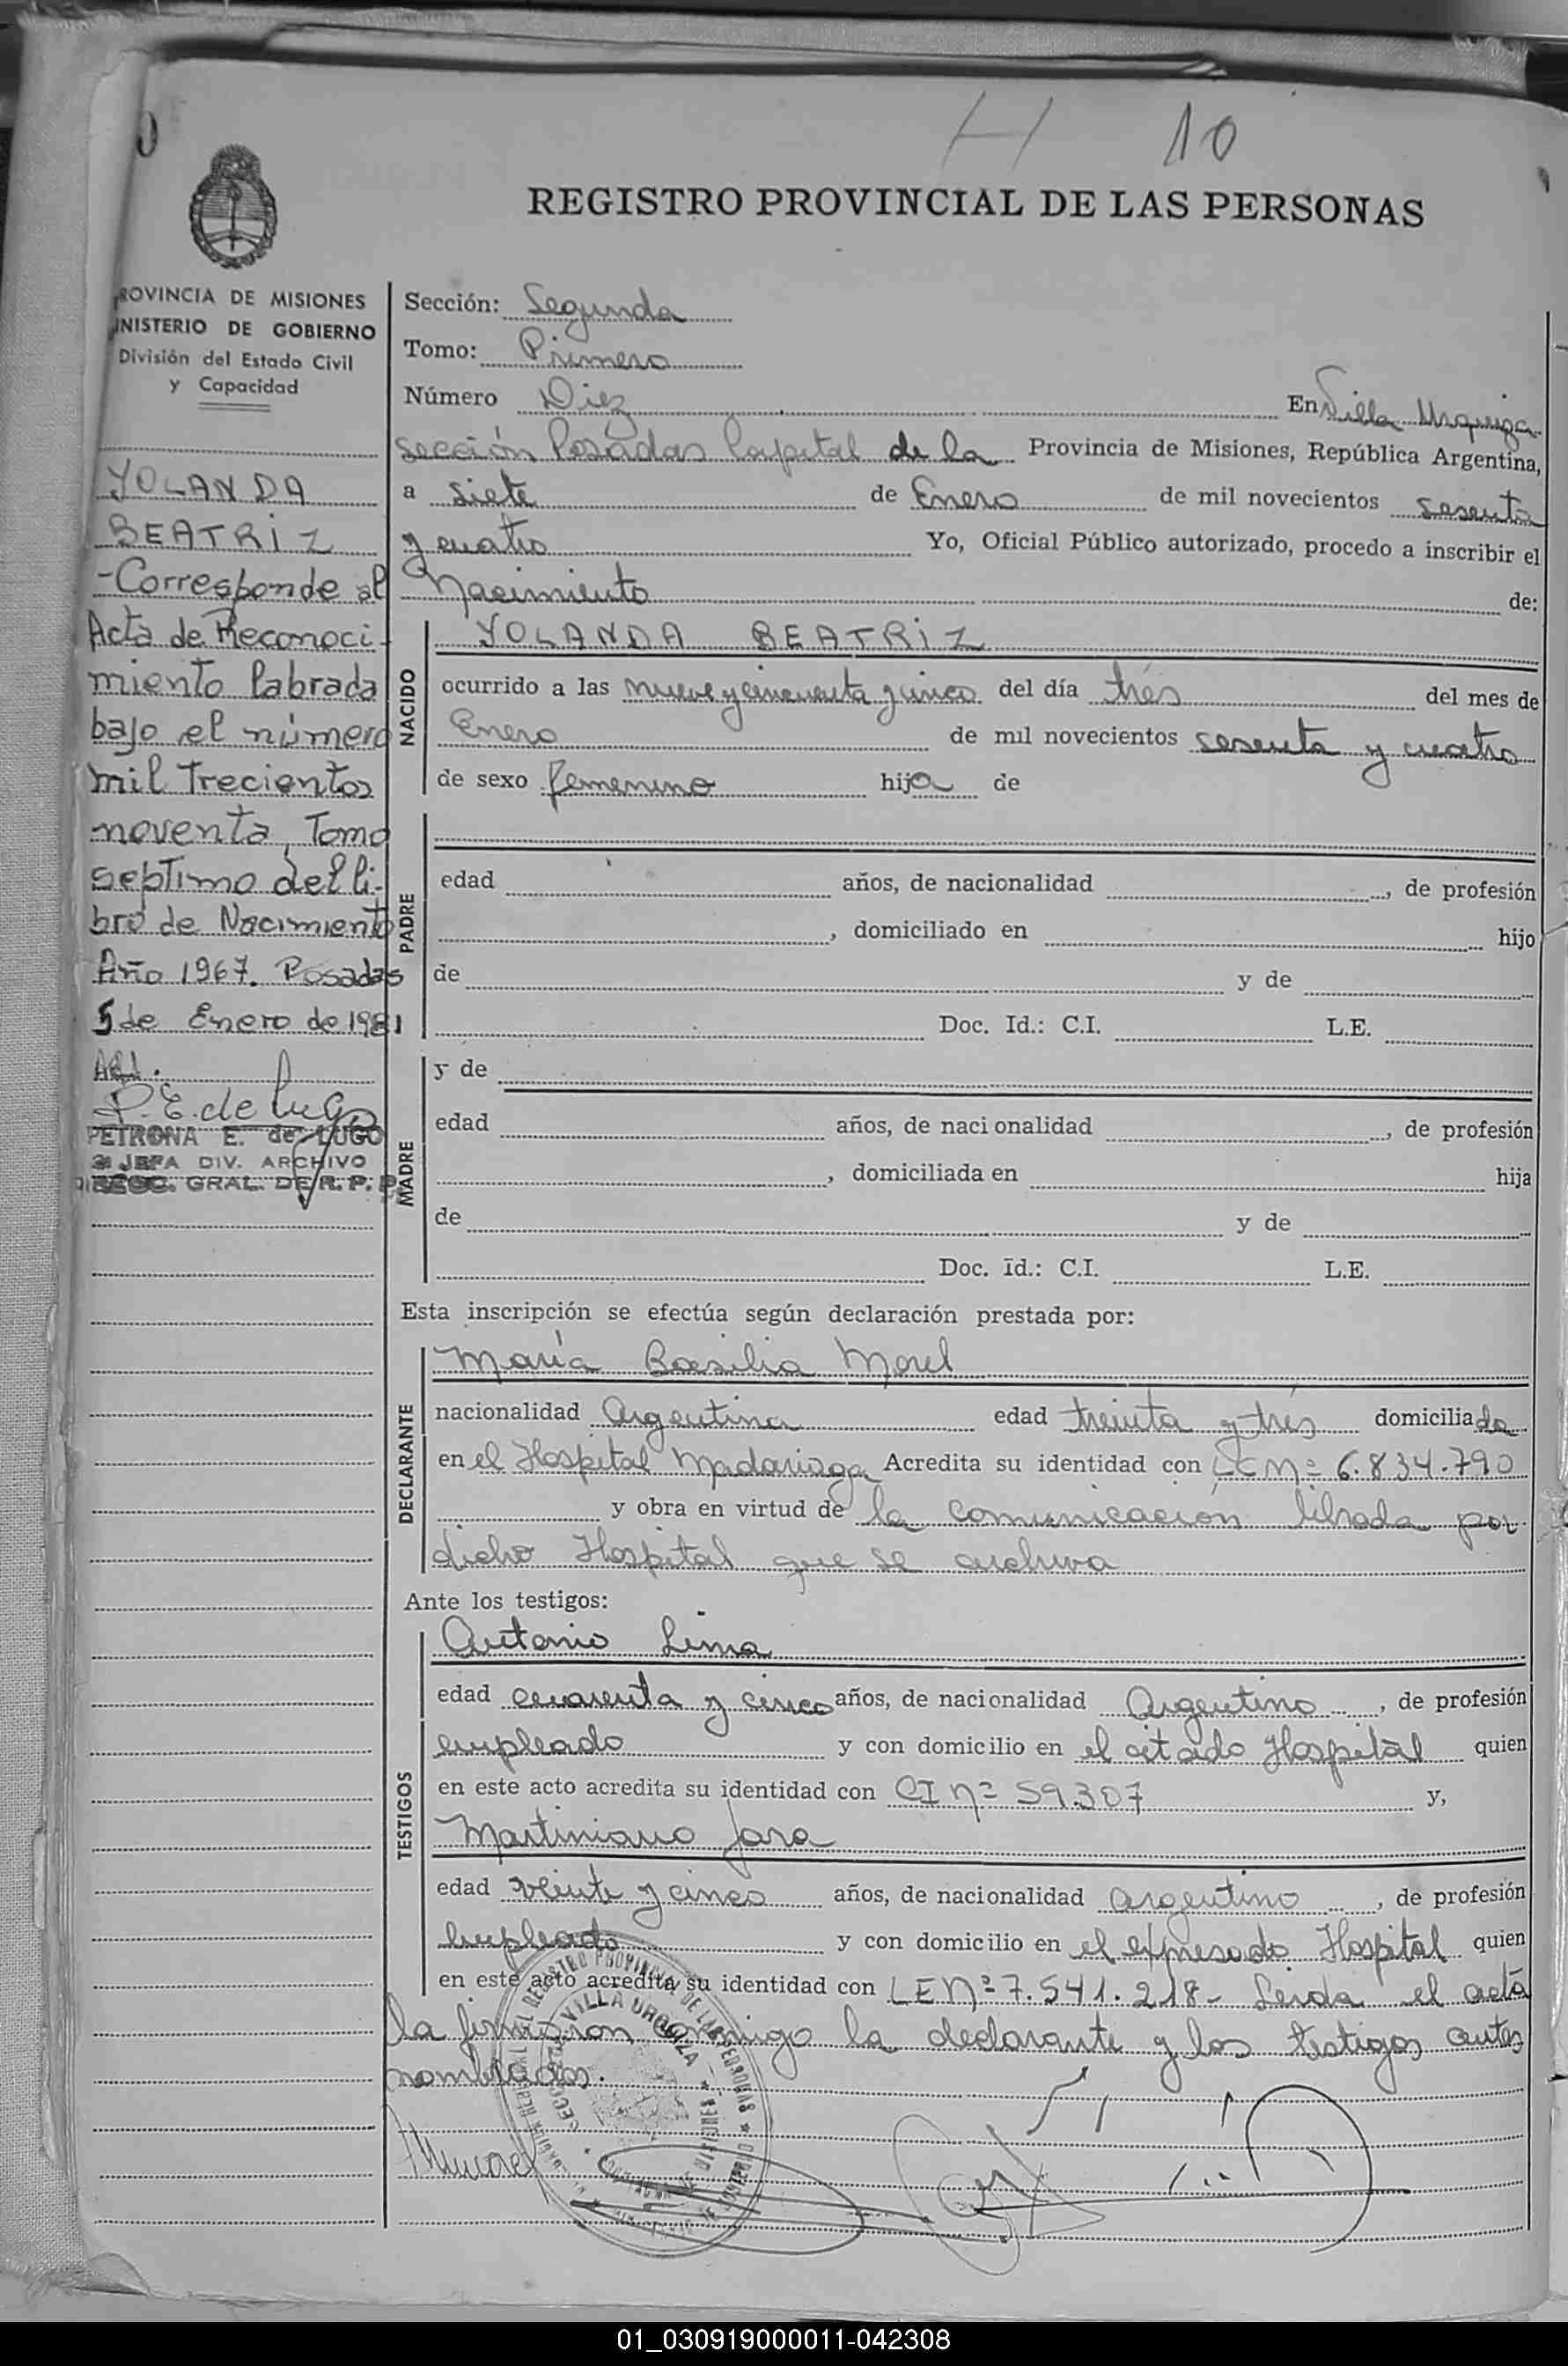 H 10
REGISTRO PROVINCIAL DE LAS PERSONAS
PROVINCIA DE MISIONES
MINISTERIO DE GOBIERNO
División del Estado Civil
y Capacidad
YOLANDA
BEATRIZ
-Corresponde al
Acta de Reconoci-
miento labrada
bajo el número
mil trecientos
noventa, Tomo
septimo del li-
bro de Nacimiento
Año 1967. Posadas
5 de Enero de 1981
P. E. de Lugo
PETRONA E. de LUGO
JEFA DIV. ARCHIVO
DIRECC. GRAL. DE R. P. P.
Sección: Segunda
Tomo: Primero
Número Diez En Villa Urquiza
Sección Posadas Capital de la Provincia de Misiones, República Argentina,
a siete de Enero de mil novecientos sesenta
y cuatro Yo, Oficial Público autorizado, procedo a inscribir el
Nacimiento de:
NACIDO
YOLANDA BEATRIZ
ocurrido a las nueve y cincuenta y cinco del día trés del mes de
Enero de mil novecientos sesenta y cuatro
de sexo femenino hija de
PADRE
edad años, de nacionalidad , de profesión
, domiciliado en hijo
de y de
Doc. Id.: C.I. L.E.
MADRE
y de
edad años, de nacionalidad , de profesión
, domiciliada en hija
de y de
Doc. Id.: C.I. L.E.
Esta inscripción se efectúa según declaración prestada por:
DECLARANTE
María Basilia Morel
nacionalidad Argentina edad treinta y trés domiciliada
en el Hospital Madariaga Acredita su identidad con LC Nº 6.834.790
y obra en virtud de la comunicación librada por
dicho Hospital que se archiva
Ante los testigos:
TESTIGOS
Antonio Lima
edad cuarenta y cinco años, de nacionalidad Argentino , de profesión
empleado y con domicilio en el citado Hospital quien
en este acto acredita su identidad con CI Nº 59.307 y,
Martiniano Jara
edad veinte y cinco años, de nacionalidad argentino , de profesión
empleado y con domicilio en el expresado Hospital quien
en este acto acredita su identidad con LE Nº 7.541.218- Leida el acta
la firmaron conmigo la declarante y los testigos antes
nombrados.
VILLA URQUIZA
01_030919000011-042308